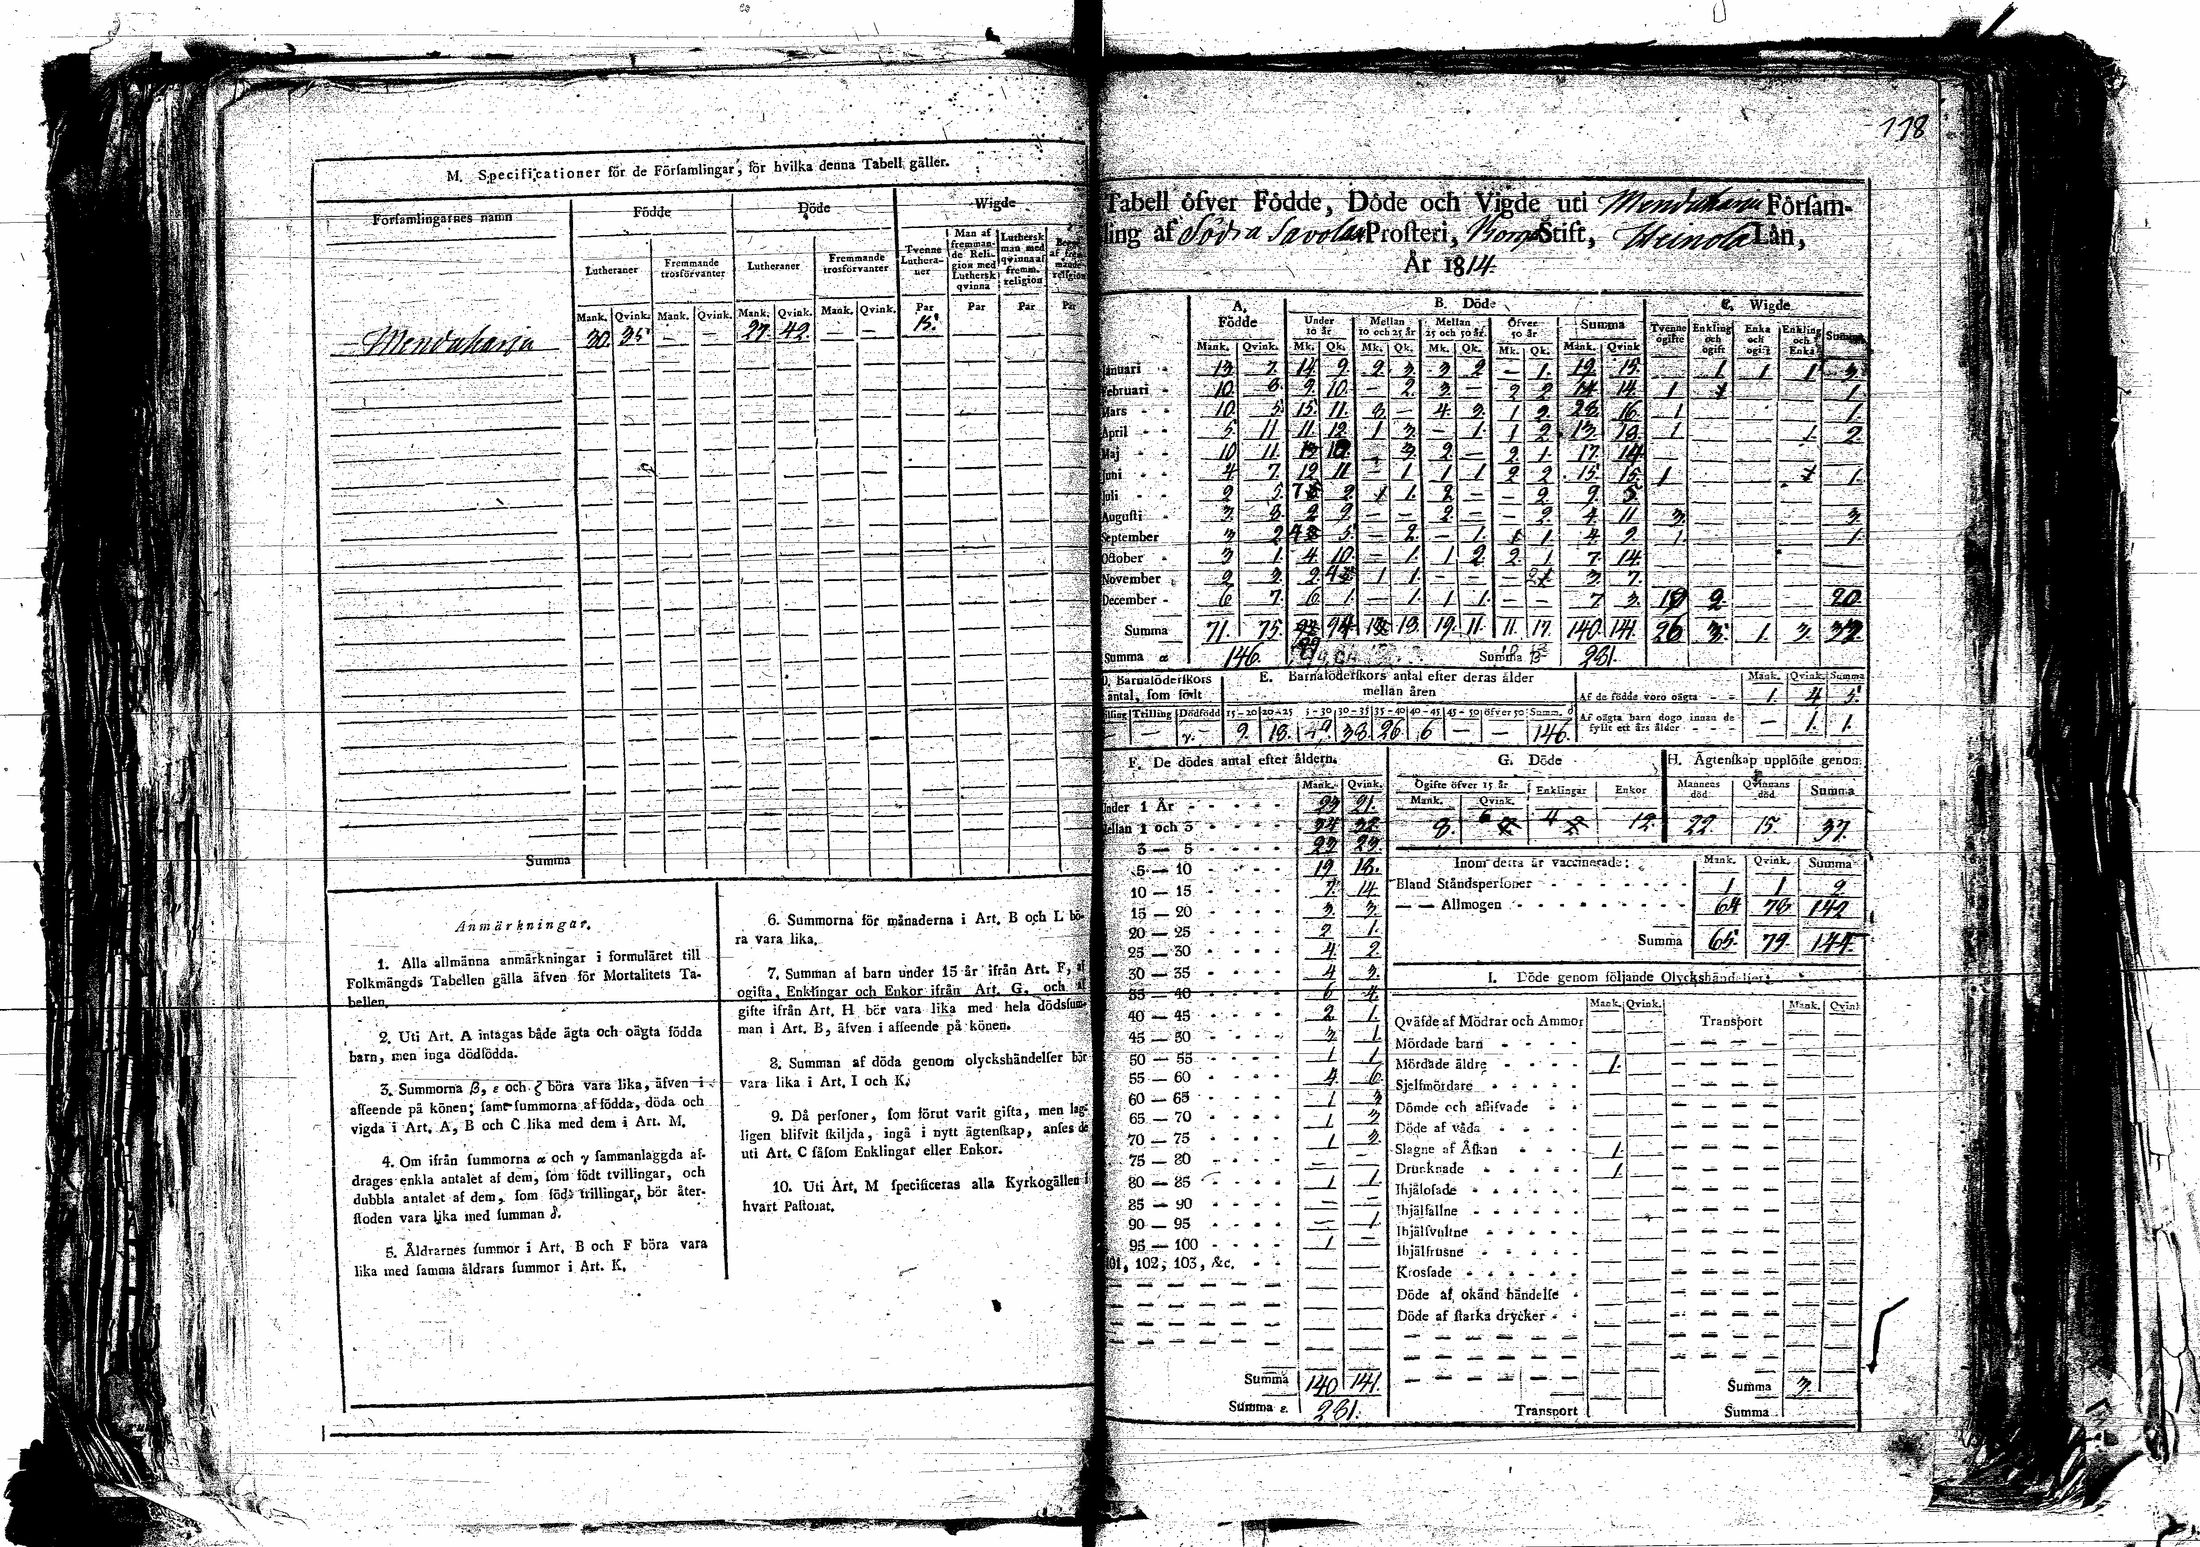 118
M. Specificationer för de Församlingar, för hvilka denna Tabell gäller.
Församlingarnes namn | Födde | Döde | Wigde
Lutheraner | Fremmande trosförvanter | Lutheraner | Fremmande trosförvanter | Tvenne Lutheraner | Man af fremmande Religion med Luthersk qvinna | Luthersk man med qvinna af fremm. religion
Mank. Qvink. Mank. Qvink. Mank. Qvink. Mank. Qvink. Par Par Par Par
Mendukarju 30. 35 — — 27. 42. — — 15.
Summa
Anmärkningar.
1. Alla allmänna anmärkningar i formuläret till
Folkmängds Tabellen gälla äfven för Mortalitets Ta-
bellen.
2. Uti Art. A intagas både ägta och oägta födda
barn, men inga dödfödda.
3. Summorna β, ε och ζ böra vara lika, äfven i
afseende på könen; samt summorna af födda, döda och
vigda i Art. A, B och C lika med dem i Art. M.
4. Om ifrån summorna α och γ sammanlaggda af-
drages enkla antalet af dem, som födt tvillingar, och
dubbla antalet af dem, som födt trillingar, bör åter-
stoden vara lika med summan δ.
5. Åldrarnes summor i Art. B och F böra vara
lika med samma åldrars summor i Art. K.
6. Summorna för månaderna i Art. B och L bö-
ra vara lika.
7. Summan af barn under 15 år ifrån Art. F, af
ogifta, Enklingar och Enkor ifrån Art. G, och af
gifte ifrån Art. H bör vara lika med hela dödssum-
man i Art. B, äfven i afseende på könen.
8. Summan af döda genom olyckshändelser bör
vara lika i Art. I och K.
9. Då personer, som förut varit gifta, men lag-
ligen blifvit skiljda, ingå i nytt ägtenskap, anses de
uti Art. C såsom Enklingar eller Enkor.
10. Uti Art. M specificeras alla Kyrkogällen i
hvart Pastorat.
Tabell öfver Födde, Döde och Vigde uti Mendukarju Försam-
ling af Södra Savolax Prosteri, Borgå Stift, Heinola Län,
År 1814.
A. Födde | B. Döde | C. Wigde
Under 10 år | Mellan 10 och 25 år | Mellan 25 och 50 år | Öfver 50 år | Summa | Tvenne ogifte | Enkling och ogift | Enka och ogift | Enkling och Enka | Summa
Mank. Qvink. Mk. Qk. Mk. Qk. Mk. Qk. Mk. Qk. Mank. Qvink
Januari 13 7. 14. 9. 2 3 3 2 — 1. 19. 15. — 1 1 1 3.
Februari 10 9. 10. — 2. 3. — 2 2 14 14. 1 1.
Mars 10 5. 15. 11. 8 — 4. 3. 1 2. 28. 16. 1 1.
April 5 11 11. 12. 1 3 — 1. 1 2. 13. 18. 1 1. 2.
Maj 10 11. — 3 2 — 2 1. 17. 14.
Juni 4 7. 12 11 — 1 1 1 2 2 15. 15. 1 1.
Juli 2 5. 7 2. 1. 2 — — 2. 9. 5.
Augusti 3. 8. 2 9. — — 2. — — 2. 4 11 3. 3.
September 3 2 4 5. — 2. — 1. 1 4 9 1. 1.
October 3 1. 4. 10. — 1. 1 2 2. 1 7. 14.
November 2 3. 2. 4 1 1. — — — 3 7.
December 6 7. 6 1. — 1. 1 1. — — 7 3. 18 2. 20
Summa 71. 75. 94 13. 19. 11. 11. 17. 140. 141. 26 3. 1. 3. 32
Summa α 146. Summa β 281.
D. Barnaföderskors antal, som födt
Trilling Dödfödd
E. Barnaföderskors antal efter deras ålder mellan åren
15-20 20-25 25-30 30-35 35-40 40-45 45-50 öfver 50 Summ. δ
9. 18. 49 38. 26. 6 — — 146.
Mank. Qvink. Summa
Af de födde voro oägta - - 1. 4 5
Af oägta barn dogo innan de fyllt ett års ålder - - — 1. 1.
F. De dödes antal efter åldern.
Mank. Qvink.
Under 1 År 23 21.
Mellan 1 och 3 34 32.
3 — 5 23 23.
5 — 10 19 18.
10 — 15 7. 14.
15 — 20 3. 3.
20 — 25 2 1.
25 — 30 4. 2.
30 — 35 4 3.
35 — 40 6 4.
40 — 45 2 1.
45 — 50 3 1.
50 — 55 1 1
55 — 60 4. 6
60 — 65 1 3
65 — 70 1 3
70 — 75 1 3.
75 — 80 — —
80 — 85 1 1.
85 — 90 — —
90 — 95 — 1.
95 — 100 1 —
101, 102, 103, &c.
Summa 140 141.
Summa ε. 281.
G. Döde
Ogifte öfver 15 år | Enklingar | Enkor
Mank. Qvink.
8. 6 4 12.
H. Ägtenskap upplöste genom
Mannens död Qvinnans död Summa
22. 15. 37.
Inom detta år vaccinerade: Mank. Qvink. Summa
Bland Ståndspersoner 1 1 2
— — Allmogen 64 78 142
Summa 65. 79. 144.
I. Döde genom följande Olyckshändelser:
Mank. Qvink. Mank. Qvink
Qväfde af Mödrar och Ammor Transport
Mördade barn
Mördade äldre 1.
Sjelfmördare
Dömde och aflifvade
Döde af våda
Slagne af Åskan 1.
Drunknade 1.
Ihjälosade
Ihjälfallne
Ihjälsvultne
Ihjälfrusne
Krossade
Döde af okänd händelse
Döde af starka drycker
Summa 3.
Transport Summa